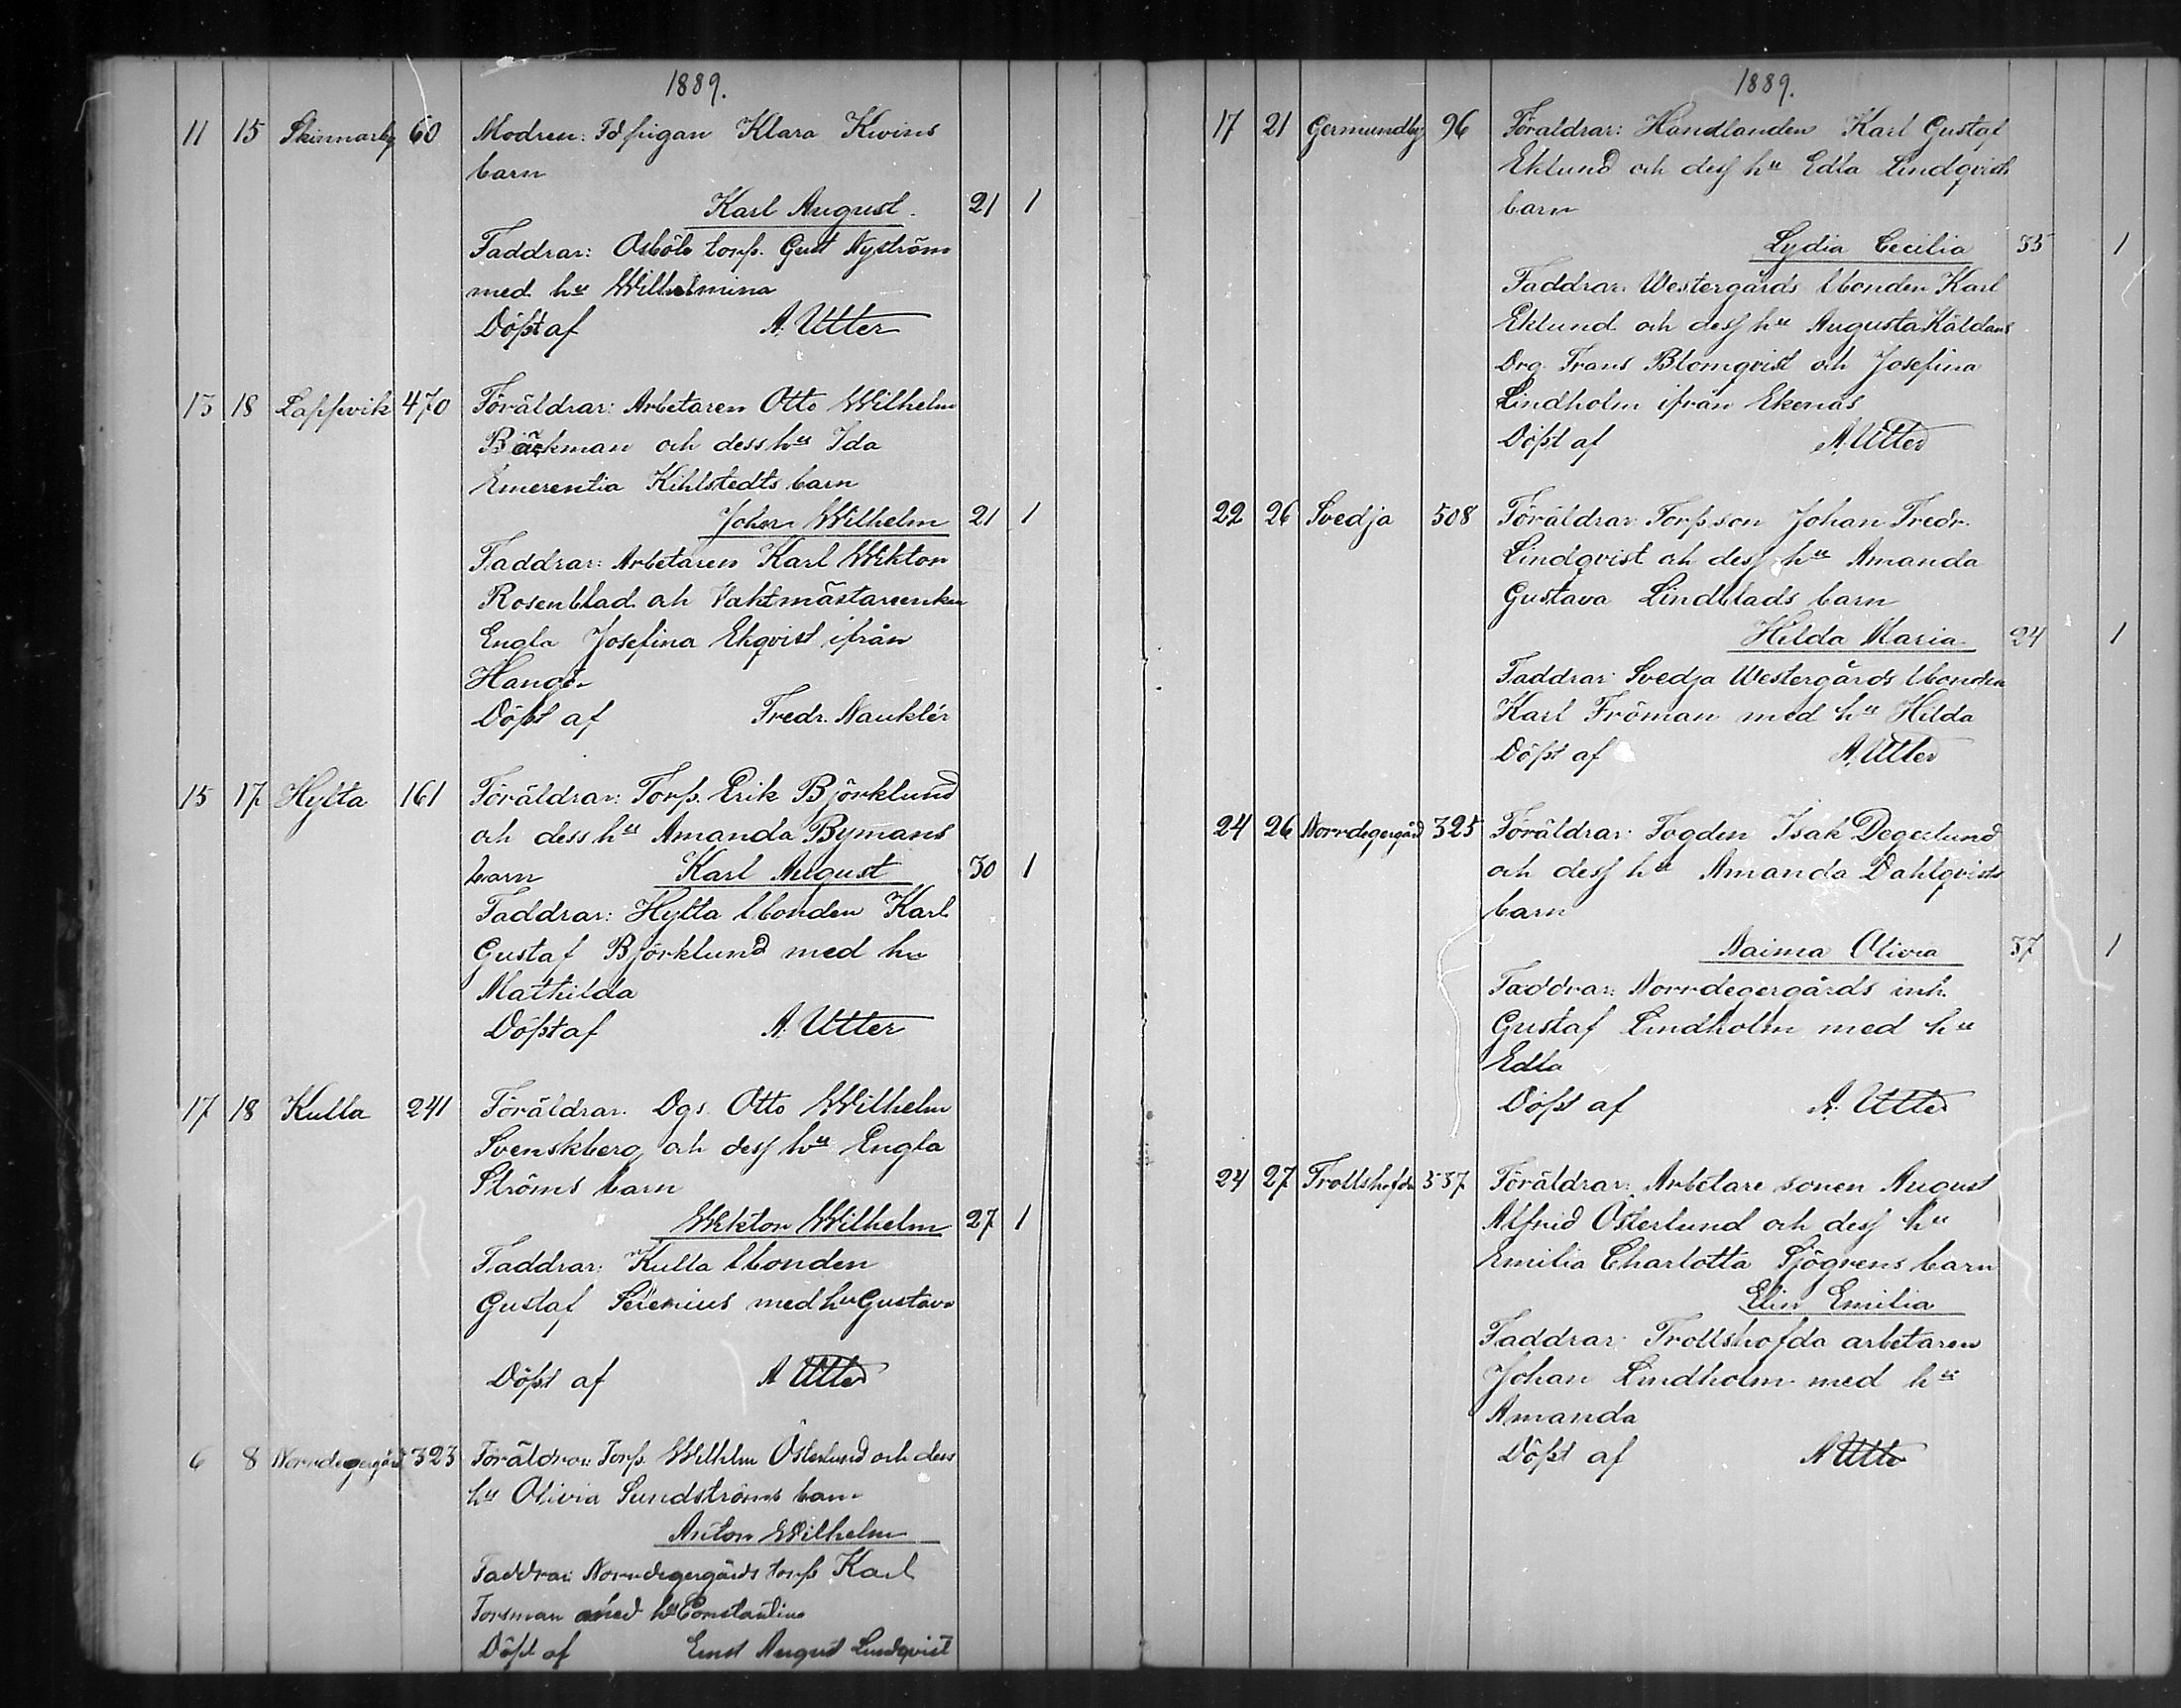 1889.
11 15 Skinnarby 60 Modren: Td pigan Klara Kivins
barn
Karl August. 21 1
Faddrar: Osböle torp. Gust Nyström
med hu Wilhelmina
Döpt af A. Utter
13 18 Lappvik 470 Föräldrar: Arbetaren Otto Wilhelm
Bäckman och dess hu Ida
Emerentia Kihlstedts barn
Johan Wilhelm 21 1
Faddrar: Arbetaren Karl Wiktor
Rosenblad och Vaktmästareenkan
Engla Josefina Ekqvist ifrån
Hangö.
Döpt af Fredr. Nauklér
15 17 Hylta 161 Föräldrar: Torp. Erik Björklund
och dess hu Amanda Bymans
barn Karl August 30 1
Faddrar: Hylta lbonden Karl
Gustaf Björklund med hu
Mathilda
Döpt af A. Utter
17 18 Kulla 241 Föräldrar. Dgs. Otto Wilhelm
Svenskberg och dess hu Engla
Ströms barn
Wiktor Wilhelm 27 1
Faddrar: Kulla lbonden
Gustaf Serenius med hu Gustava
Döpt af A Utter
6 8 Norrdegergård 323 Föräldrar: Torp. Wilhelm Österlund och dess
hu Olivia Sundströms barn
Anton Wilhelm
Faddrar: Norrdegergårds torp Karl
Forsman med hu Constantina
Döpt af Ernst August Lundqvist
1889.
17 21 Germundby 96 Föräldrar: Handlanden Karl Gustaf
Eklund och dess hu Edla Lindqvists
barn
Lydia Cecilia 35 1
Faddrar: Westergårds lbonden Karl
Eklund och dess hu Augusta Käldans
Drg. Frans Blomqvist och Josefina
Lindholm ifrån Ekenäs
Döpt af A. Utter
22 26 Svedja 508 Föräldrar Torp.son Johan Fredr.
Lindqvist och dess hu Amanda
Gustava Lindblads barn
Hilda Maria 24 1
Faddrar: Svedja Westergårds lbonden
Karl Fröman med hu Hilda
Döpt af A. Utter
24 26 Norrdegergård 325 Föräldrar: Fogden Isak Degerlund
och dess hu Amanda Dahlqvists
barn
Naima Olivia 37 1
Faddrar: Norrdegergårds inh.
Gustaf Lindholm med hu
Edla
Döpt af A. Utter
24 27 Trollshofda 537 Föräldrar: Arbetare sonen August
Alfrid Österlund och dess hu
Emilia Charlotta Sjögrens barn
Elin Emilia
Faddrar: Trollshofda arbetaren
Johan Lindholm med hu
Amanda
Döpt af A Utter